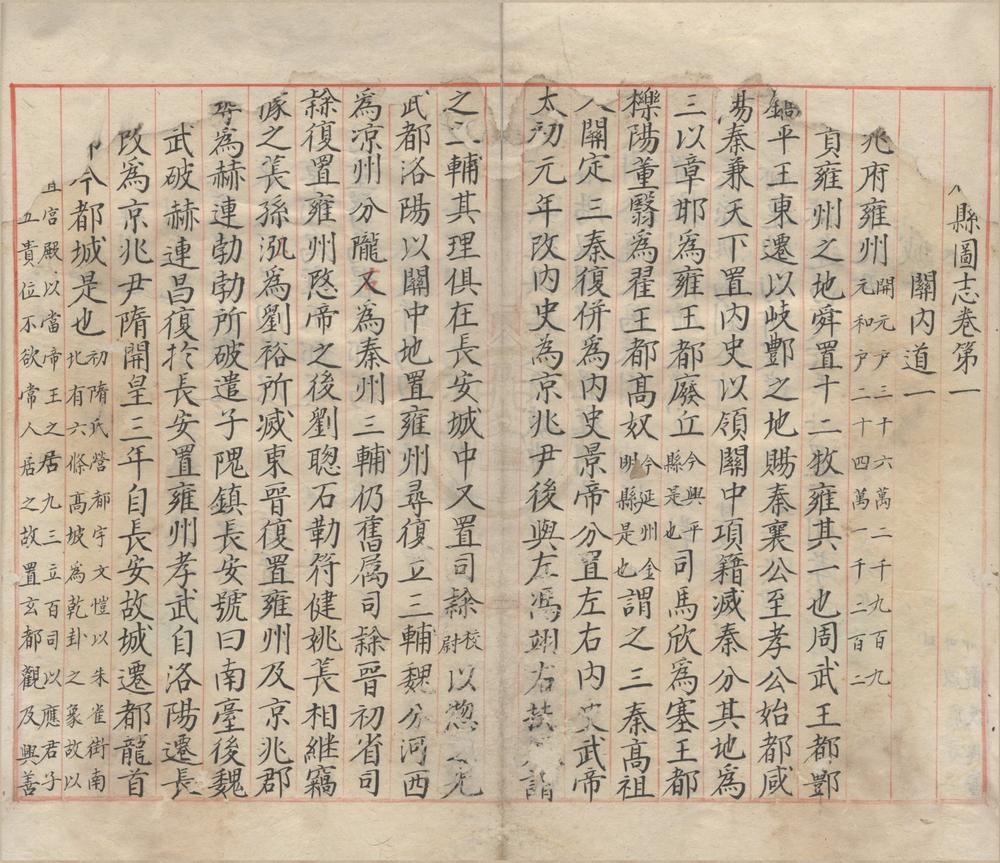 縣圖志卷第一
關内道一
兆府雍州開元戸三十六萬二千九百九
元和戸二十四萬一千二百二
貢雍州之地舜置十二牧雍其一也周武王都酆
鎬平王東遷以岐酆之地賜秦襄公至孝公始都咸
陽秦兼天下置内史以領關中項籍滅秦分其地為
三以章邯為雍王都廢丘今興平縣是也司馬欣為塞王都
櫟陽董翳為翟王都髙奴今延州金明縣是也謂之三秦高祖
入關定三秦復併為内史景帝分置左右内史武帝
太初元年改内史為京兆尹後與左馮翊右扶
之三輔其理俱在長安城中又置司隸校尉以惣
武都洛陽以關中地置雍州尋復立三輔魏分河西
為凉州分隴又為秦州三輔仍舊属司隸晉初省司
隸復置雍州愍帝之後劉聰石勒符健姚萇相継竊
㨿之萇孫泓為劉裕所滅東晉復置雍州及京兆郡
尋為赫連勃勃所破遣子隗鎮長安號曰南臺後魏
武破赫連昌復扵長安置雍州孝武自洛陽遷長
改為京兆尹隋開皇三年自長安故城遷都龍首
今都城是也初隋氏營都宇文愷以朱雀街南
北有六條髙坡為乾卦之象故以
宫殿以當帝王之居九三立百司以應君子
五貴位不欲常人居之故置玄都觀及興善